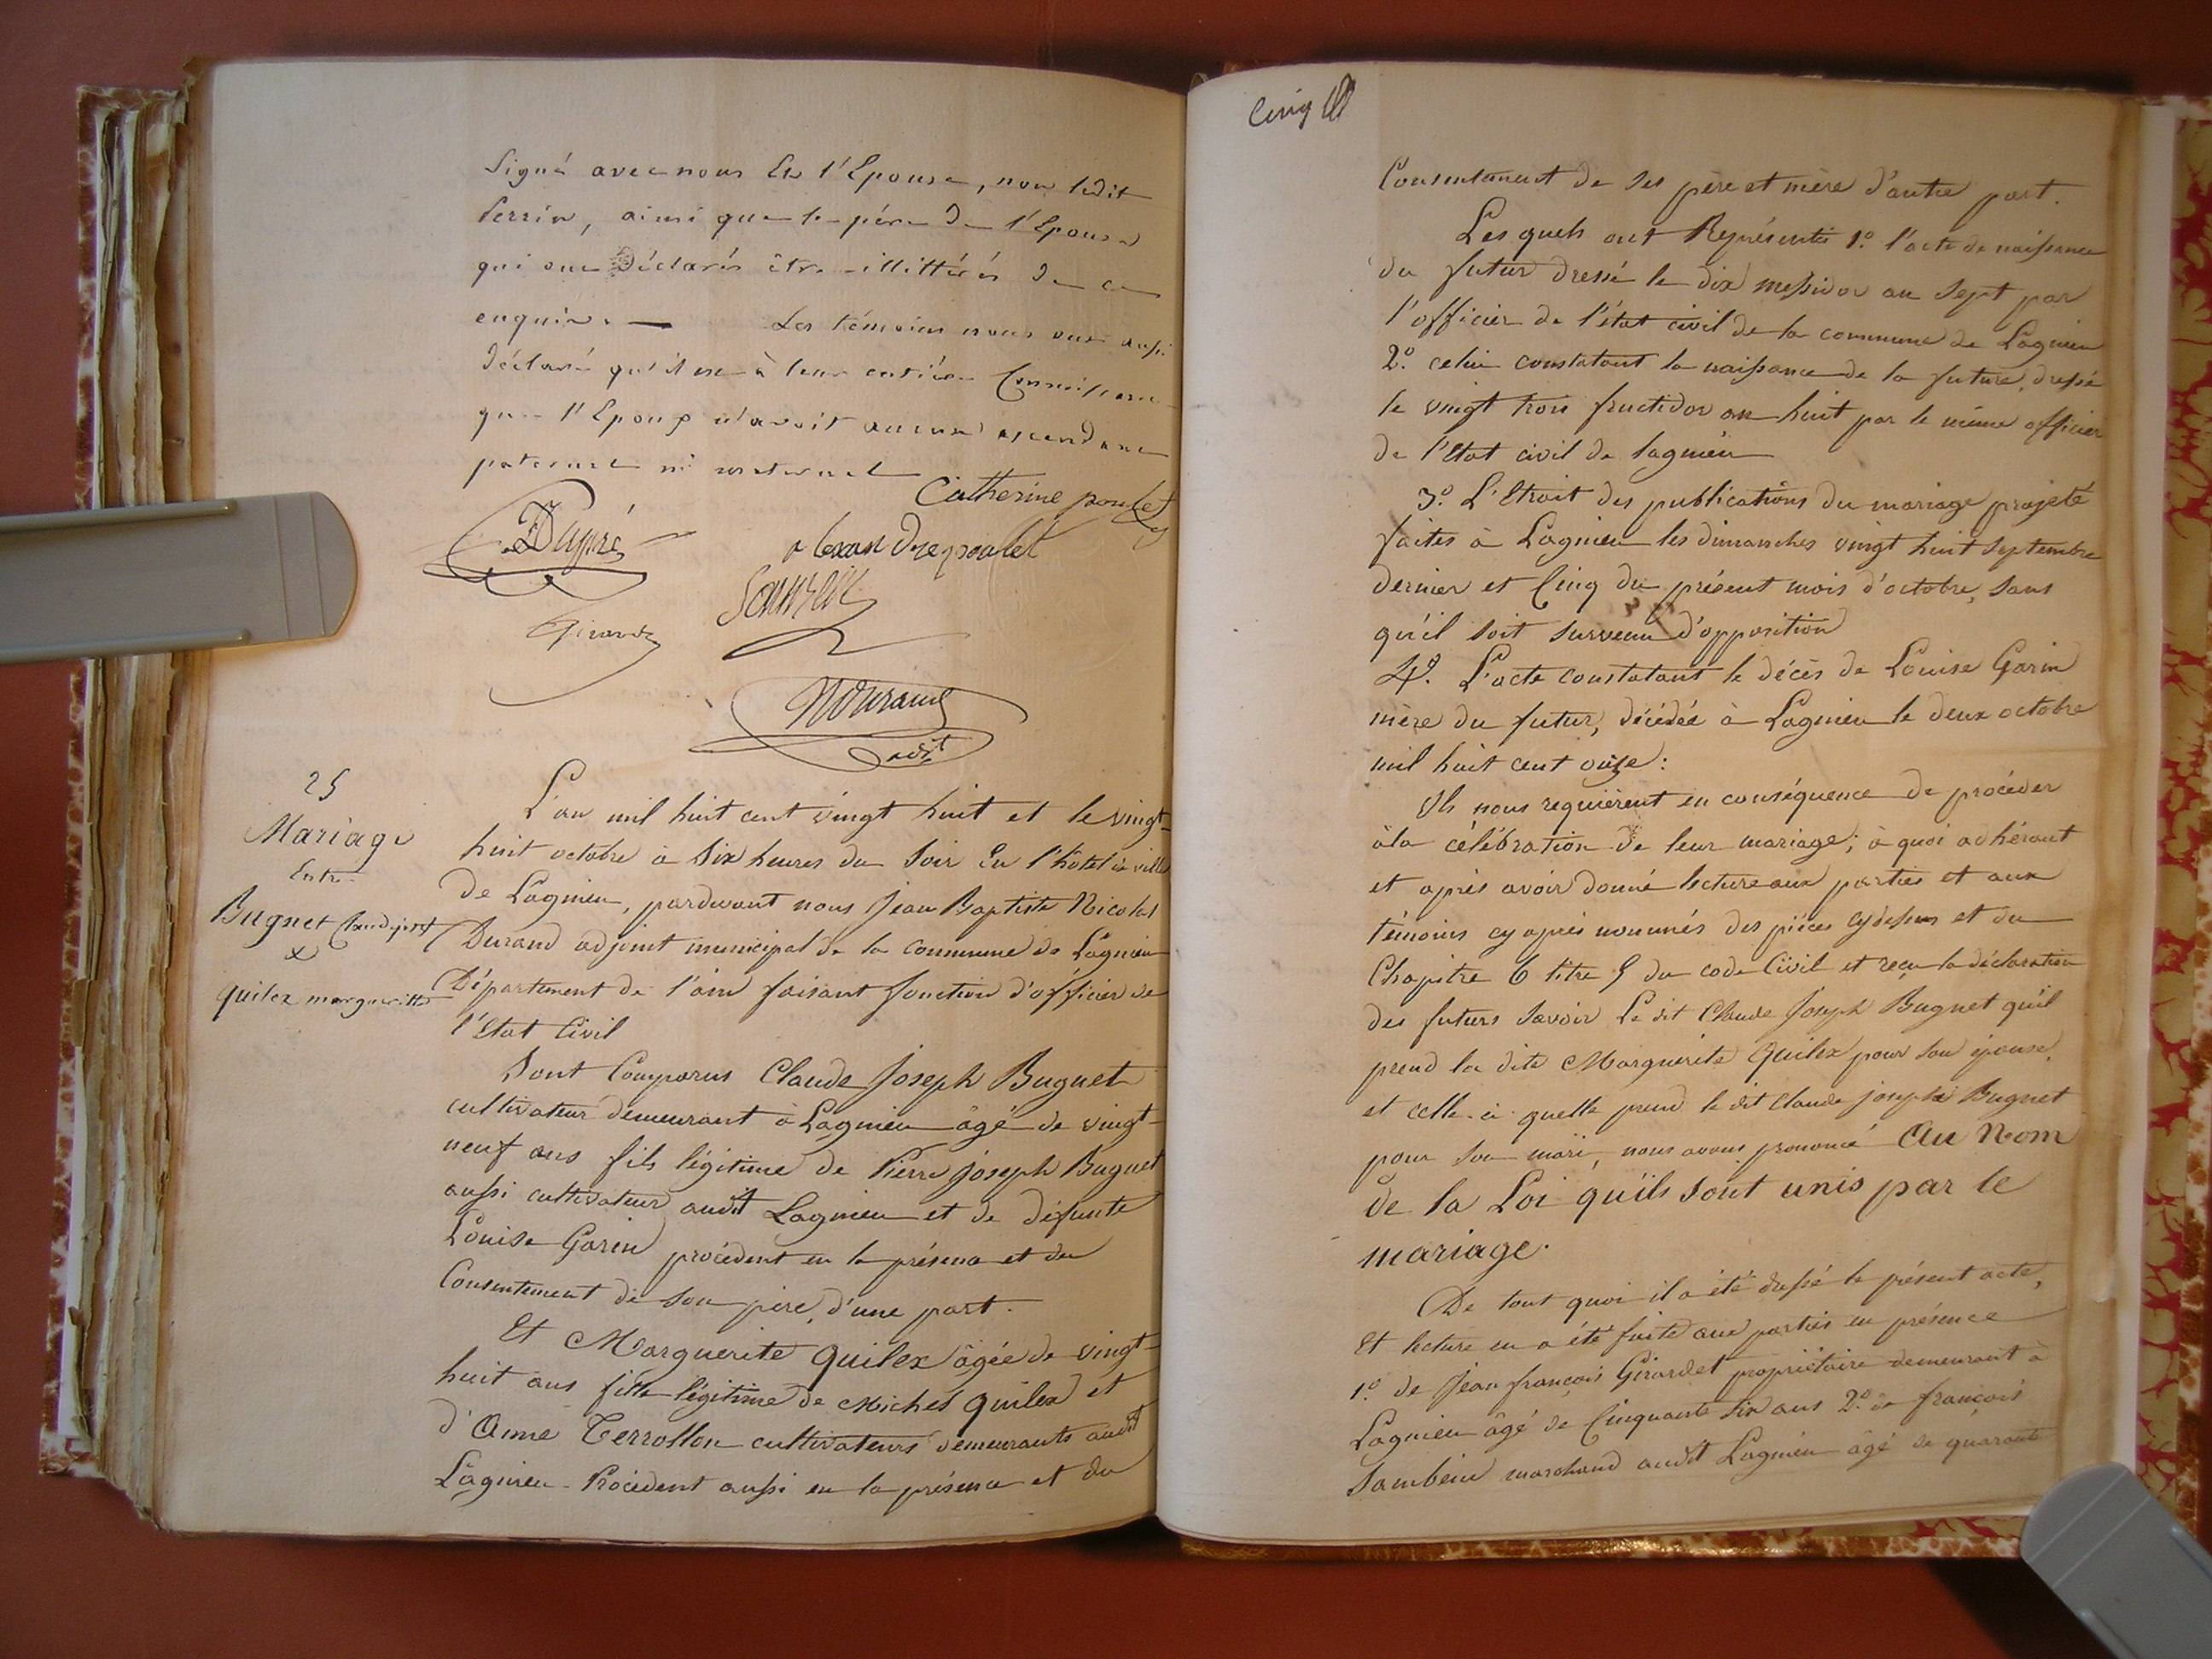 Signé avec nous Et l'Epouse, non ledit
Perrin, ainsi que le père de l'Epouse
qui ont déclarés être illittérés de ce
enquis. — Les témoins nous ont aussi
déclaré qu'il est à leur entière Connaissance
que l'Epoux n'avoit aucun ascendant
paternel ni maternel
Catherine poulet
Dupré
alexandre poulet
Sambein
Girardet
NDurand
adjt
25
Mariage
Entre
Bugnet Claud joseph
x
quilex margueritte
L'an mil huit cent vingt huit et le vingt-
huit octobre à Six heures du Soir En l'hôtel de ville
de Lagnieu, pardevant nous Jean Baptiste Nicolas
Durand adjoint municipal de la commune de Lagnieu
Département de l'ain faisant fonction d'officier de
l'Etat Civil
Sont Comparus Claude Joseph Bugnet
cultivateur demeurant à Lagnieu âgé de vingt-
neuf ans fils légitime de Pierre joseph Bugnet
aussi cultivateur audit Lagnieu et de défunte
Louise Garin procédent en la présence et du
Consentement de son père, d'une part.
Et Marguerite Quilex âgée de vingt-
huit ans fille légitime de Michel Quilex et
d'Anne Terrollon cultivateurs demeurants audit
Lagnieu - Procédent aussi en la présence et du
Cinq
Consentement de Ses père et mère d'autre part.
Les quels ont Représentés 1.º l'acte de naissance
du futur dressé le dix messidor an Sept par
l'officier de l'état civil de la commune de Lagnieu
2.º celui constatant la naissance de la future, dressé
le vingt trois fructidor an huit par le même officier
de l'Etat civil de lagnieu
3.º L'Etrait des publications du mariage projeté
faites à Lagnieu les dimanches vingt huit Septembre
dernier et Cinq du présent mois d'octobre, Sans
qu'il soit survenu d'opposition
4.º L'acte constatant le décès de Louise Garin
mère du futur, décédée à Lagnieu le deux octobre
mil huit cent onze :
Ils nous requièrent en conséquence de procéder
à la célébration de leur mariage ; à quoi adhérant
et après avoir donné lecture aux parties et aux
témoins cy après nommés des pièces cydessus et du
Chapitre 6 titre 5 du code Civil et reçu la déclaration
des futurs Savoir Le dit Claude Joseph Bugnet qu'il
prend la dite Marguerite Quilex pour son épouse,
et celle-ci quelle prend le dit Claude joseph Bugnet
pour son mari, nous avons prononcé Au Nom
de la Loi qu'ils sont unis par le
mariage.
De tout quoi il a été dressé le présent acte,
Et lecture en a été faite aux parties en présence
1.º de Jean françois Girardet propriétaire demeurant à
Lagnieu âgé de Cinquante Six ans 2.º de françois
Sambein marchand audit Lagnieu âgé de quarante